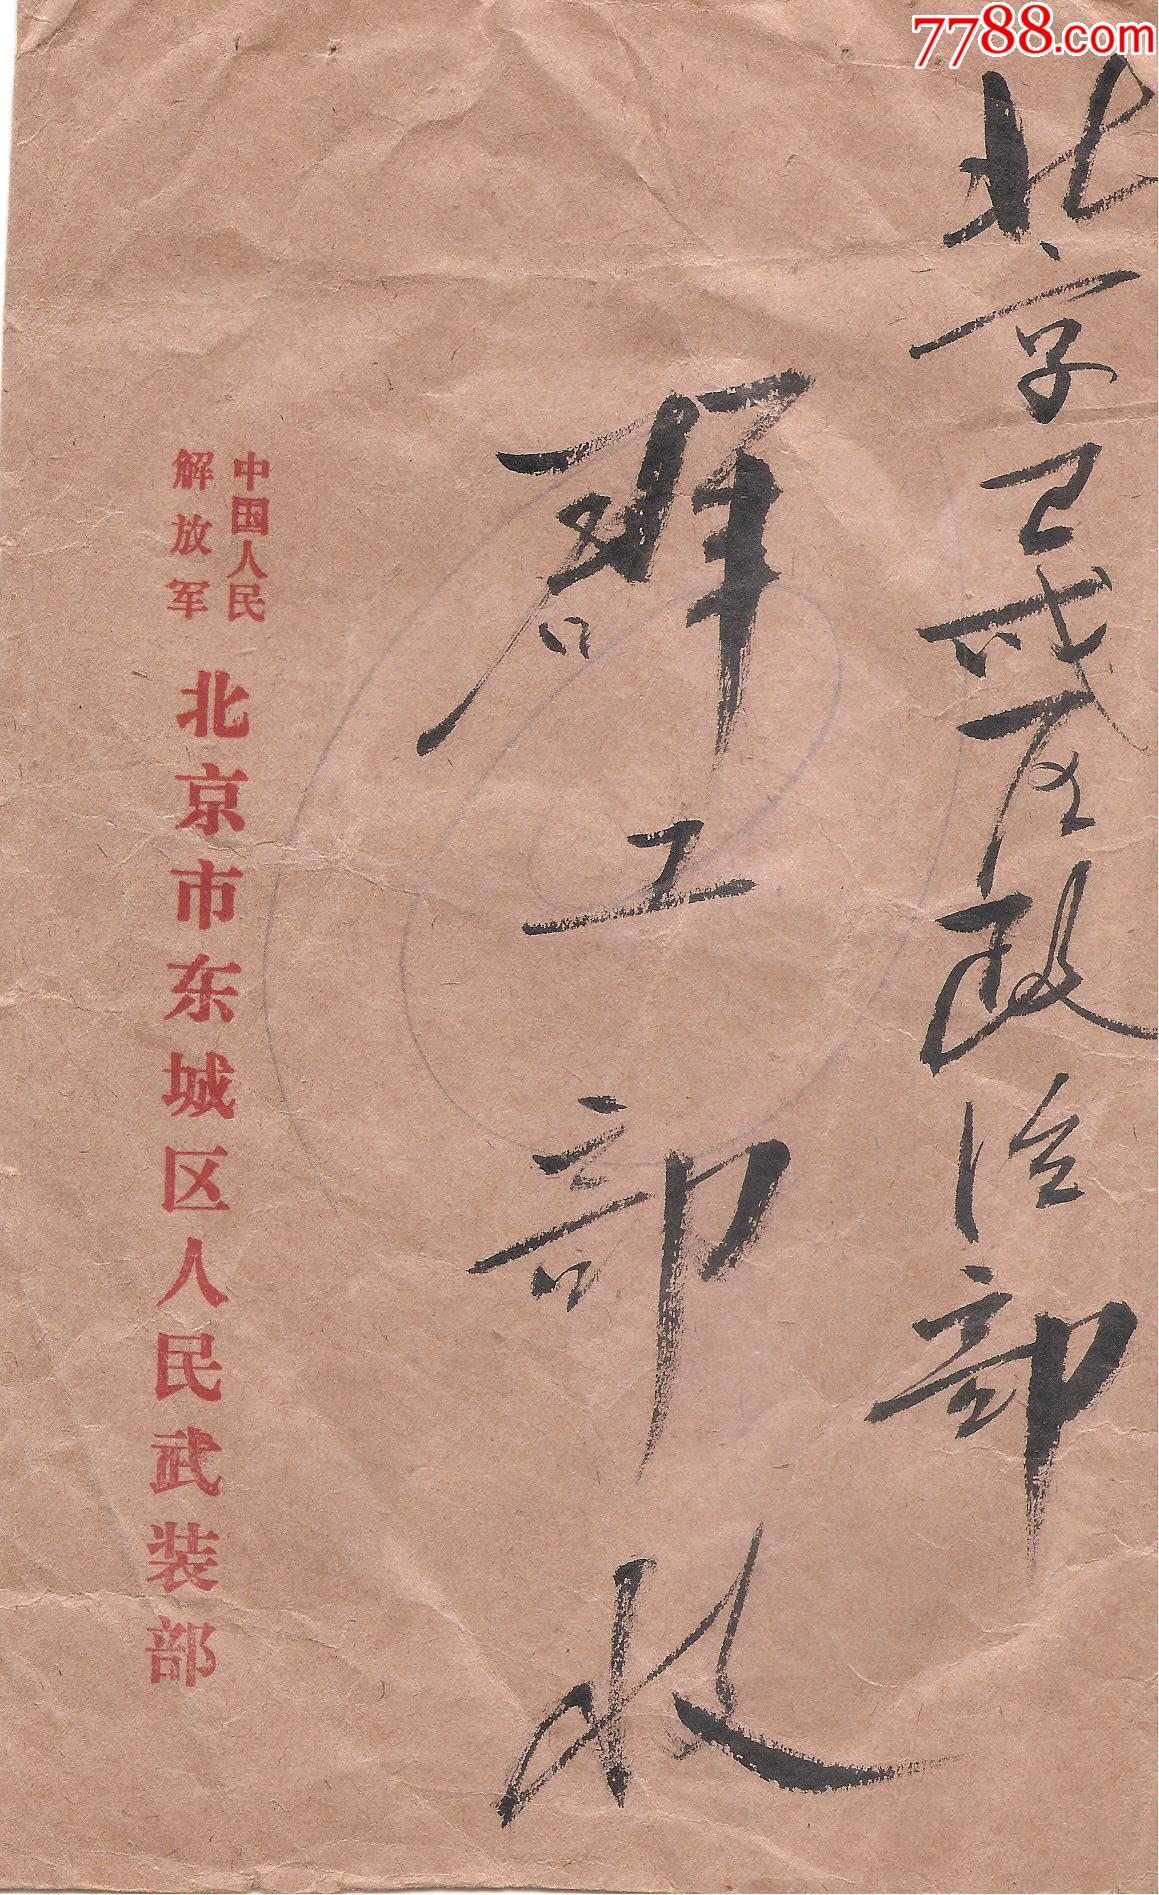 7788.com
北京卫戍区政治部
群工部收
中国人民
解放军
北京市东城区人民武装部